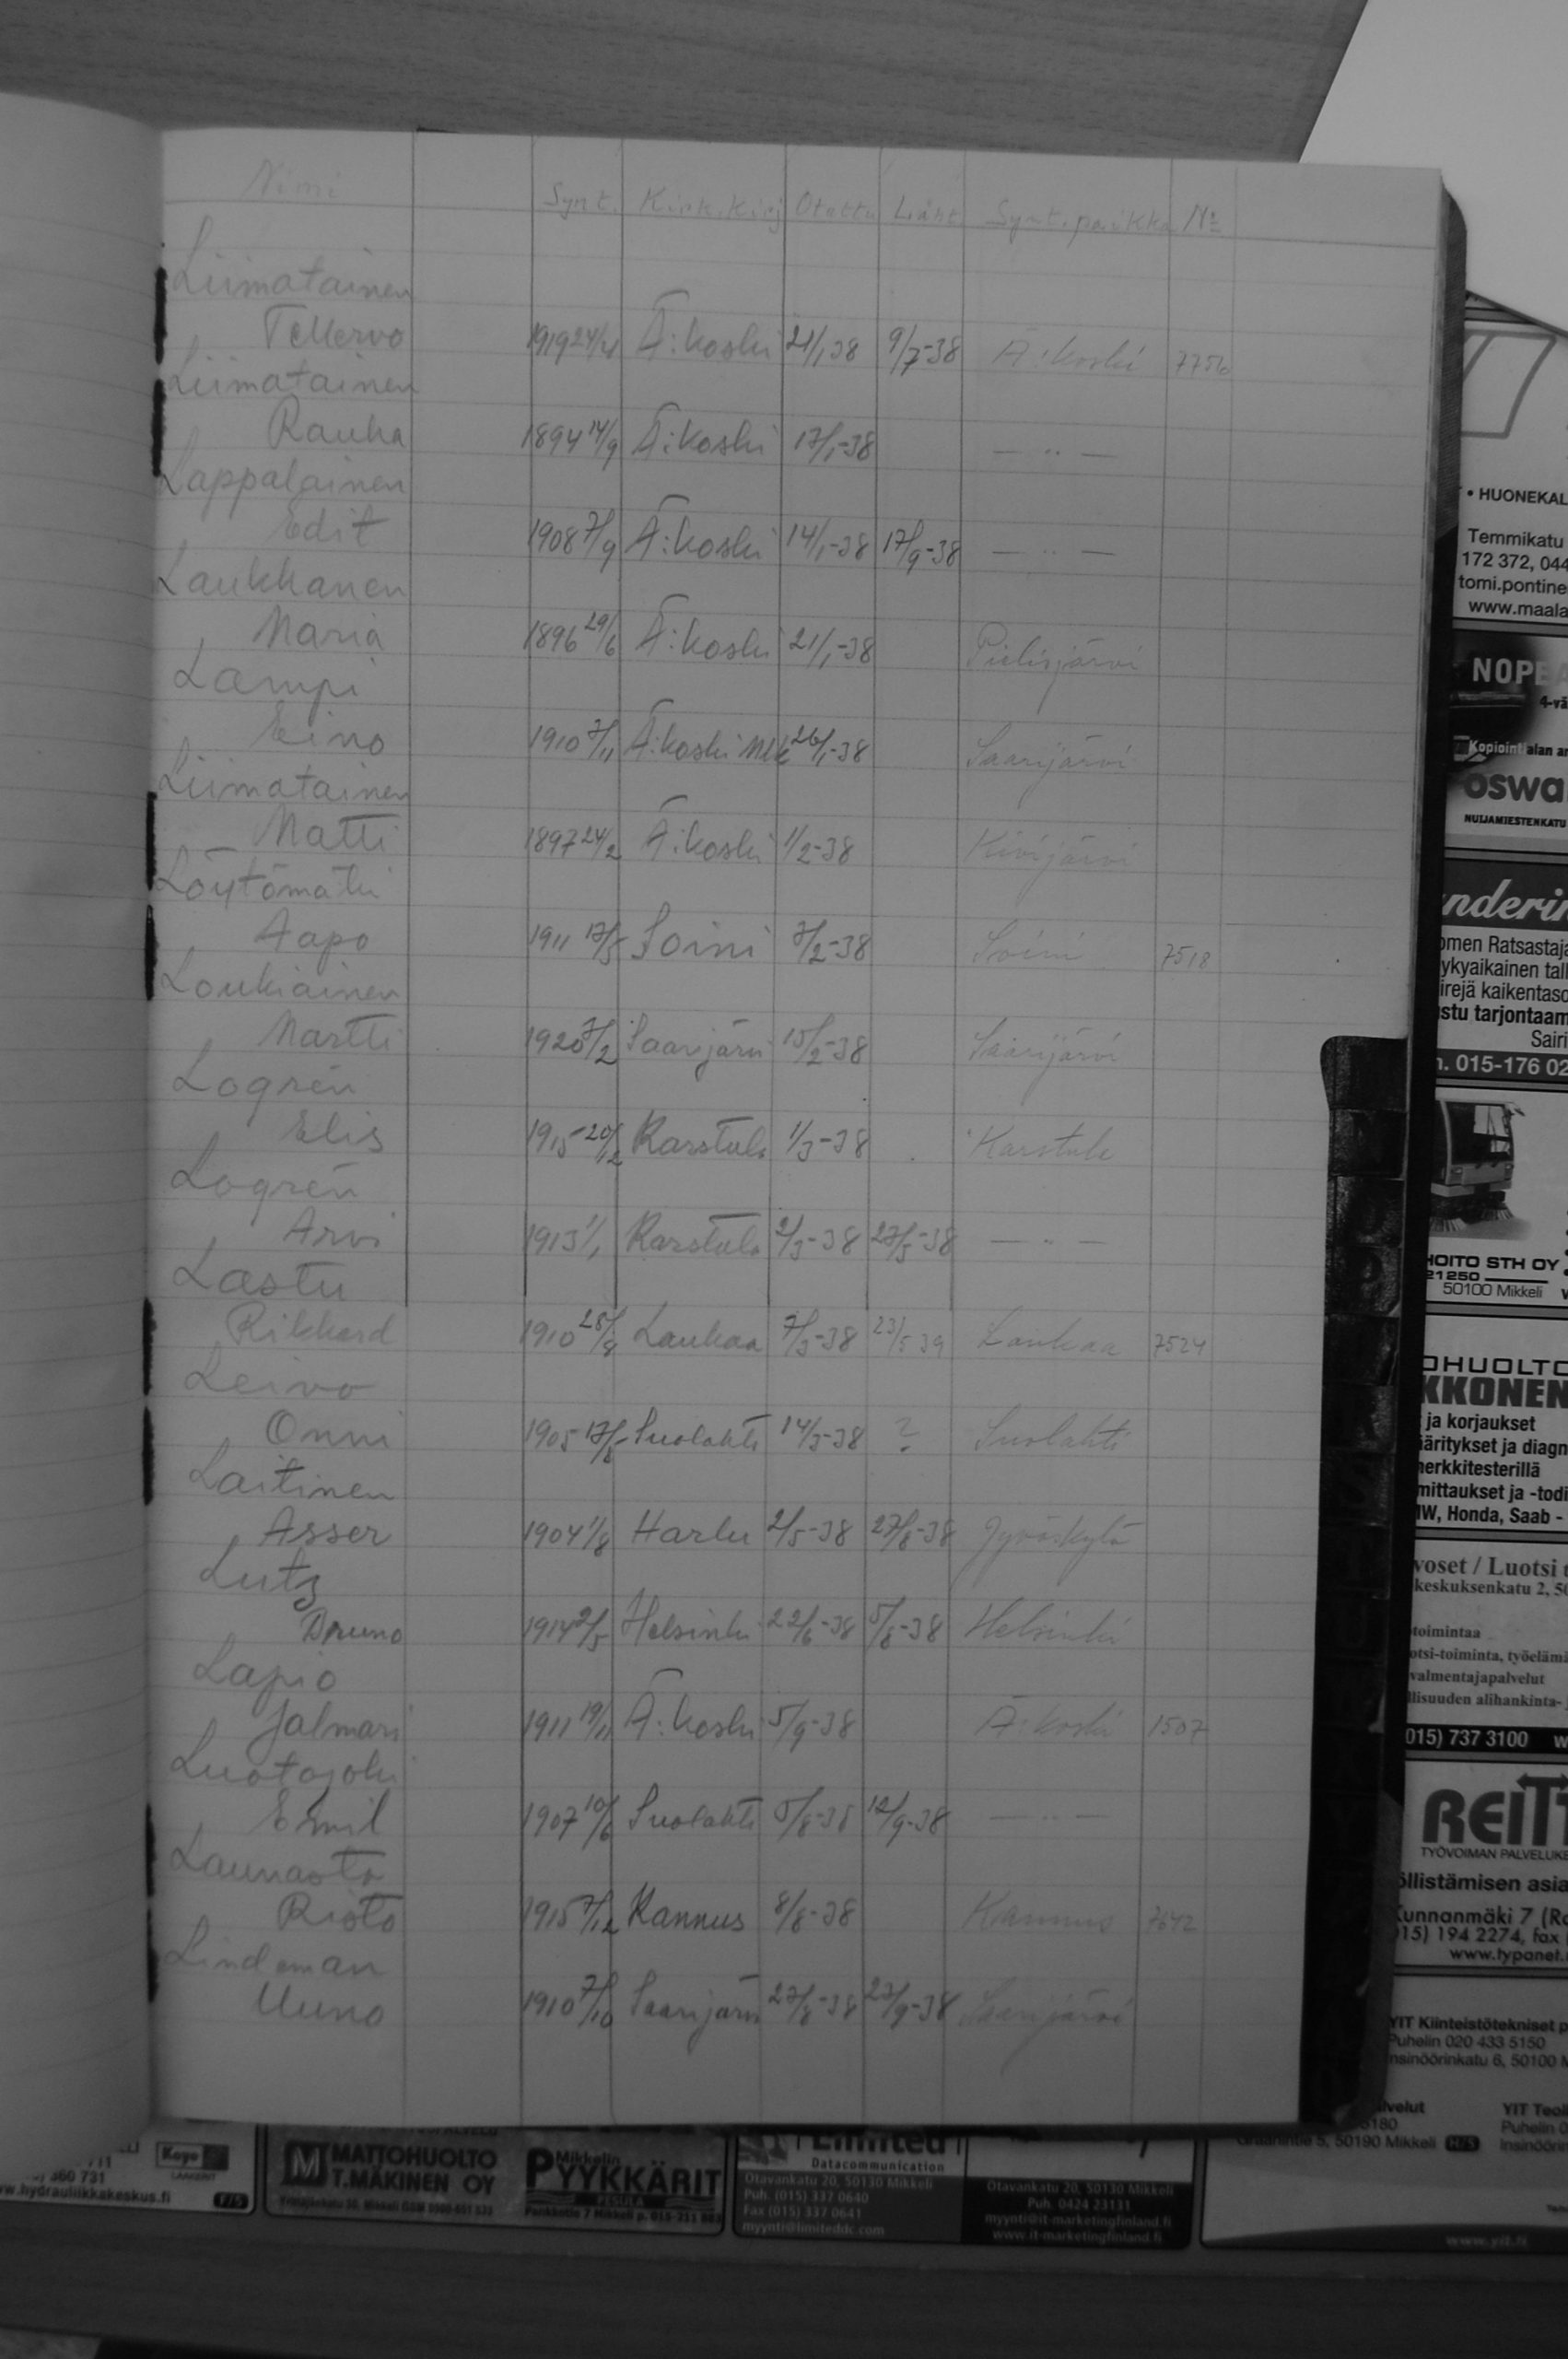 Nimi Synt. Kirk.kirj Otettu Läht. Synt.paikka No
Liimatainen
Tellervo 1919 24/4 Ä:koski 21/1 38 9/7-38 Ä:koski 7756
Liimatainen
Rauha 1894 14/9 Ä:koski 17/1-38 — ·· —
Lappalainen
Edit 1908 7/9 Ä:koski 14/1-38 17/9-38 — ·· —
Laukkanen
Maria 1896 29/6 Ä:koski 21/1-38 Pielisjärvi
Lampi
Eino 1910 7/11 Ä:koski Mlk 26/1-38 Saarijärvi
Liimatainen
Matti 1897 24/2 Ä:koski 1/2-38 Kivijärvi
Löytömäki
Aapo 1911 17/5 Soini 7/2-38 Soini 7518
Loukiainen
Martti 1920 7/2 Saarijärvi 15/2-38 Saarijärvi
Logrén
Elis 1915 20/12 Karstula 1/3-38 Karstula
Logrén
Arvi 1913 1/1 Karstula 2/3-38 27/5-38 — ·· —
Lastu
Rikkard 1910 28/8 Laukaa 7/3-38 23/5 39 Laukaa 7524
Leivo
Onni 1905 Suolahti 14/3-38 ? Suolahti
Laitinen
Asser 1904 1/8 Harlu 2/5-38 27/8-38 Jyväskylä
Lutz
Bruno 1914 2/5 Helsinki 22/6-38 5/8-38 Helsinki
Lapio
Jalmari 1911 19/11 Ä:koski 5/9-38 Ä:koski 1507
Luotojoki
Emil 1907 10/6 Suolahti 5/8-38 12/9-38 — ·· —
Launasto
Risto 1915 7/12 Kannus 8/8-38 Kannus 7642
Lindeman
Uuno 1910 7/10 Saarijärvi 27/8-38 23/9-38 Saarijärvi
• HUONEKAL
Temmikatu
172 372, 044
tomi.pontine
www.maala
NOPEA
4-vä
Kopiointialan
oswa
NUIJAMIESTENKATU
nderin
omen Ratsastaja
ykyaikainen tall
irejä kaikentaso
stu tarjontaam
Sairi
. 015-176 02
HOITO STH OY
21250
50100 Mikkeli
OHUOLTO
KKONEN
ja korjaukset
ääritykset ja diagn
merkkitesterillä
mittaukset ja -todi
MW, Honda, Saab -
voset / Luotsi t
keskuksenkatu 2, 50
toimintaa
otsi-toiminta, työelämä
valmentajapalvelut
llisuuden alihankinta-
015) 737 3100
REITT
TYÖVOIMAN PALVELUKE
öllistämisen asia
Kunnanmäki 7 (Ra
15) 194 2274, fax
www.typanet.
YIT Kiinteistötekniset p
Puhelin 020 433 5150
Insinöörinkatu 6, 50100 M
YIT Teol
Puhelin 0
Insinöörin
5, 50190 Mikkeli
www.yit.fi
Kayo
360 731
w.hydrauliikkakeskus.fi
MATTOHUOLTO
T.MÄKINEN OY
Mikkelin
PYYKKÄRIT
PESULA
Limited
Datacommunication
Otavankatu 20, 50130 Mikkeli
Puh. (015) 337 0640
Fax (015) 337 0641
myynti@limiteddc.com
Otavankatu 20, 50130 Mikkeli
Puh. 0424 23131
myynti@it-marketingfinland.fi
www.it-marketingfinland.fi